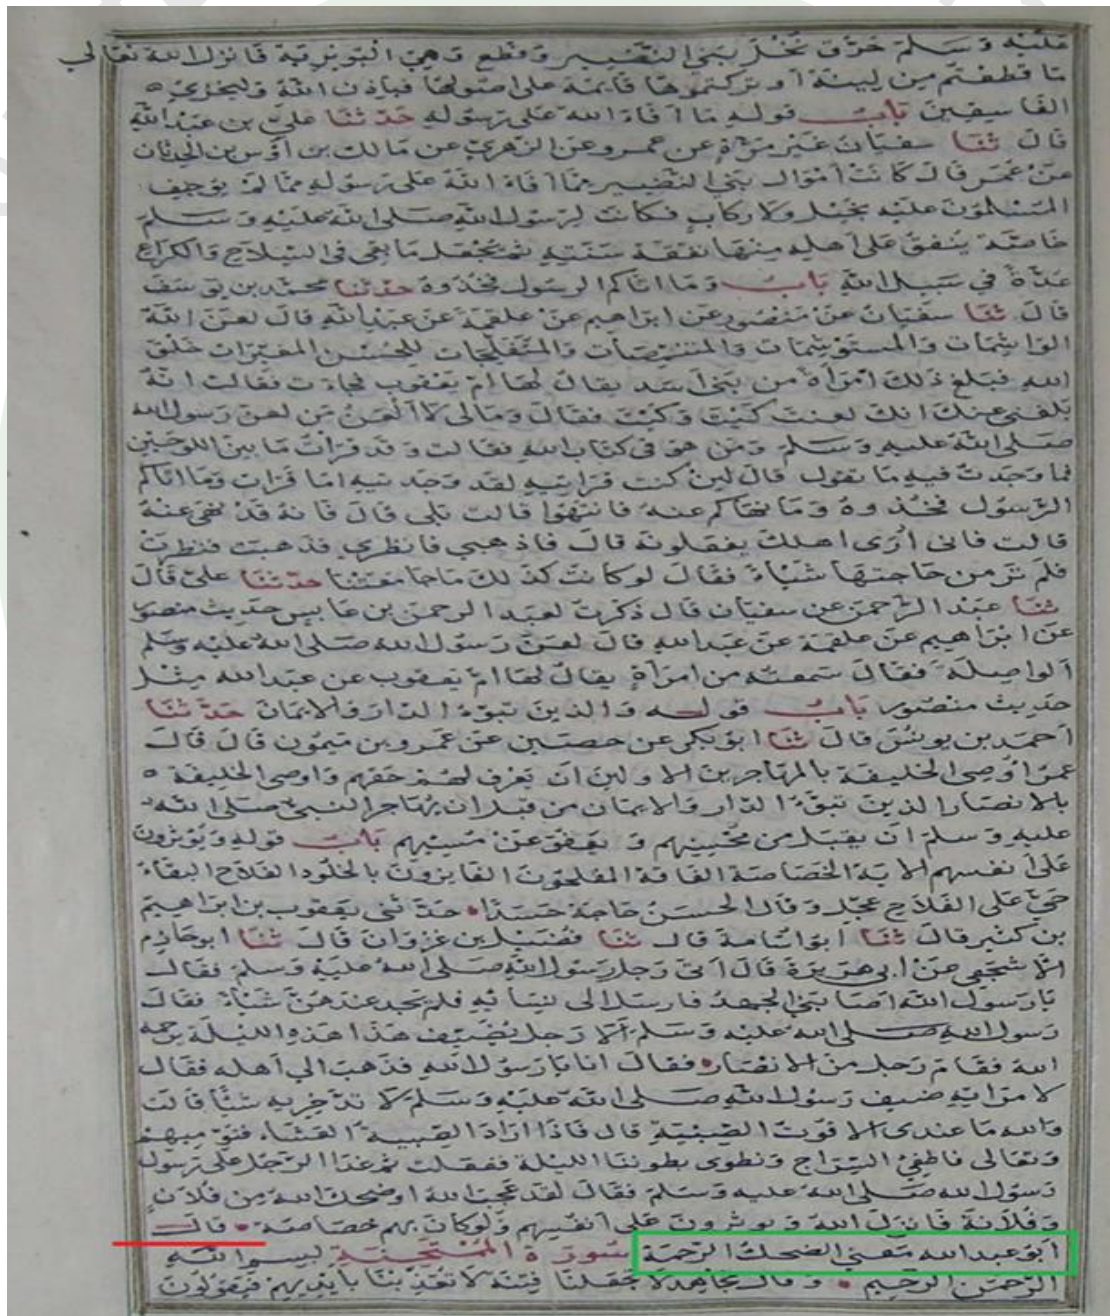 عَلَيْهِ وَسَلَّمَ حَرَّقَ نَخْلَ بَنِي النَّضِيرِ وَقَطَعَ وَهِيَ الْبُوَيْرَةُ فَأَنْزَلَ اللهُ تَعَالَى
مَا قَطَعْتُمْ مِنْ لِينَةٍ أَوْ تَرَكْتُمُوهَا قَائِمَةً عَلَى أُصُولِهَا فَبِإِذْنِ اللهِ وَلِيُخْزِيَ
الْفَاسِقِينَ بَابُ قوله مَا أَفَاءَ اللهُ عَلَى رَسُولِهِ حَدَّثَنَا عَلِيُّ بن عَبْدِ اللهِ
قَالَ ثَنَا سفيَان غَيْرَ مَرَّةٍ عن عمرو عن الزهري عن مَالك بن أوس بن الحدثان
عن عُمَر قَالَ كَانَتْ أَمْوَال بَنِي النضير ممَّا أَفَاءَ اللهُ عَلَى رَسُولِهِ ممَّا لَمْ يوجِف
المسلمونَ عليه بخيل ولا ركاب فكانت لرسول الله صلى الله عليه وسلم
خاصّة ينفق على أهله منها نفقة سنته ثم يجعل ما بقي في السلاح والكراع
عدّة في سبيل الله بَابُ وما اتاكم الرسول فخذوه حدثنا محمد بن يوسف
قالَ ثنا سفيان عن منصور عن ابراهيم عن علقمة عن عبد الله قال لعن الله
الواشمات والمستوشمات والمتنمصات والمتفلجات للحسن المغيرات خلق
الله فبلغ ذلك امرأة من بني أسد يقال لها ام يعقوب فجاءت فقالت انه
بلغني عنك انك لعنت كيت وكيت فقال ومالى لا ألعن من لعن رسول الله
صلى الله عليه وسلم ومن هو في كتاب الله فقالت وقد قرات ما بين اللوحين
فما وجدت فيه ما تقول قال لين كنت قراتيه لقد وجدتيه اما قرات وما اتاكم
الرسول فخذوه وما نهاكم عنه فانتهوا قالت بلى قال فانه قد نهى عنه
قالت فانى أرى اهلك يفعلونه قال فاذهبي فانظري فذهبت فنظرت
فلم تر من حاجتها شيئا فقال لو كانت كذلك ما جامعتنا حدثنا علي قال
ثنا عبد الرحمن عن سفيان قال ذكرت لعبد الرحمن بن عابس حديث منصور
عن ابراهيم عن علقمة عن عبد الله قال لعن رسول الله صلى الله عليه وسلم
الواصلة فقال سمعته من امرأة يقال لها ام يعقوب عن عبد الله مثل
حديث منصور باب قوله والذين تبوؤا الدار والايمان حدثنا
أحمد بن يونس قال ثنا ابو بكر عن حصين عن عمرو بن ميمون قال قال
عمر أوصى الخليفة بالمهاجرين الاولين ان يعرف لهم حقهم واوصى الخليفة
بالانصار الذين تبوؤا الدار والايمان من قبل ان يهاجر النبي صلى الله
عليه وسلم ان يقبل من محسنهم و يعفو عن مسيهم باب قوله ويوثرون
على أنفسهم الاية الخصاصة الفاقة المفلحون الفايزون بالخلود الفلاح البقاء
حي على الفلاح عجل وقال الحسن حاجة حسدا حدثنى يعقوب بن ابراهيم
بن كثير قال ثنا أبو اسامة قال ثنا فضيل بن غزوان قال ثنا ابو حازم
الأشجعي عن أبي هريرة قال أتى رجل رسول الله صلى الله عليه وسلم فقال
يا رسول الله أصابني الجهد فارسل الى نسائه فلم يجد عندهن شيئا فقال
رسول الله صلى الله عليه وسلم ألا رجل يضيف هذا هذه الليلة يرحمه
الله فقام رجل من الانصار فقال انا يا رسول الله فذهب الى أهله فقال
لامراته ضيف رسول الله صلى الله عليه وسلم لا تدخريه شيئا قالت
والله ما عندى الا قوت الصبية قال فاذا اراد الصبية العشاء فنوميهم
وتعالى فاطفئ السراج ونطوى بطوننا الليلة ففعلت ثم غدا الرجل على رسول
رسول الله صلى الله عليه وسلم فقال لقد عجب الله او ضحك الله من فلان
وفلانة فانزل الله ويوثرون على انفسهم ولو كان بهم خصاصة قال
أبو عبد الله معنى الضحك الرحمة سورة الممتحنة بسم الله
الرحمن الرحيم وقال مجاهد لا تجعلنا فتنة لا تعذبنا بأيديهم فيقولون